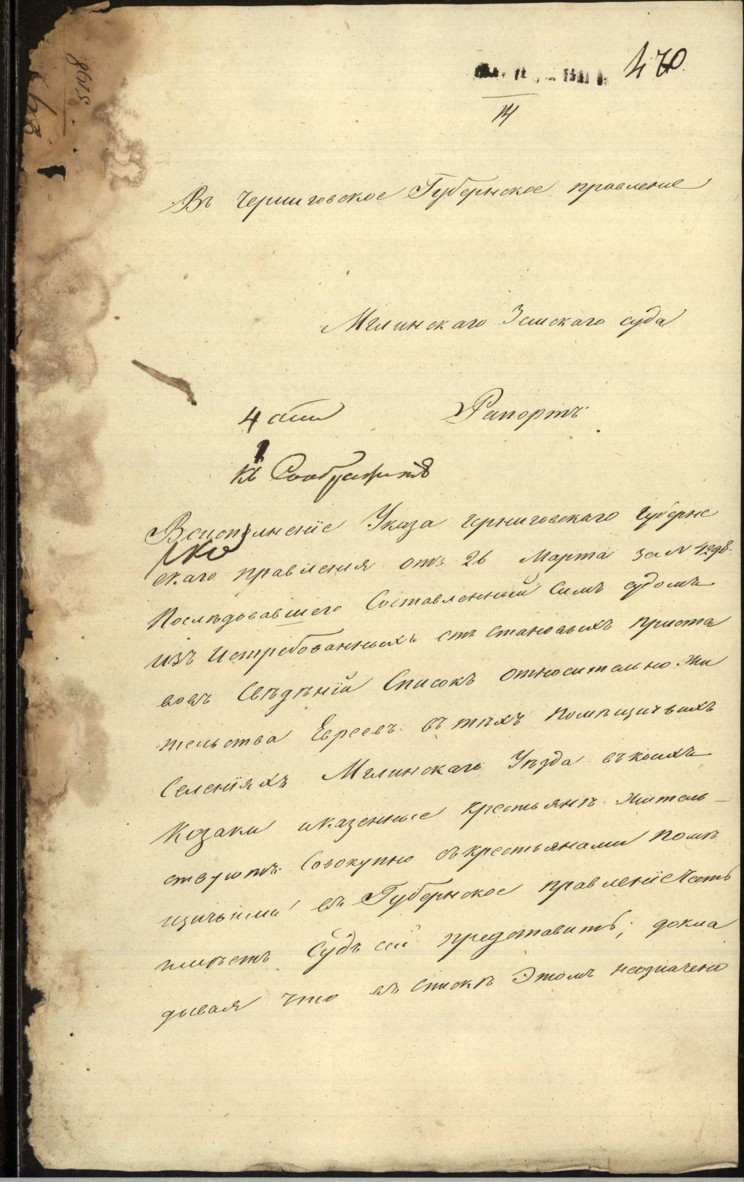 470
14
5198
Въ Черниговское Губернское правление
Мглинскаго Земскаго суда
4 Рапортъ
къ
Воисполнение Указа Черниговскаго Губернс
скаго правления отъ 26 Марта за N
Последовавшего Составленный Симъ судомъ
изъ Истребованныхъ отъ становыхъ приста
вовъ Сведений Списокъ относительно жи
тельства Евреевъ въ техъ помещичьихъ
Селенияхъ Мглинскаго Уезда въ коихъ
Козаки и казенные крестьяне житель-
ствуютъ Совокупно съ крестьянами поме
щичьими въ Губернское правление Честь
имеетъ Судъ сей представить, докла
дывая что въ списке Этомъ неозначено